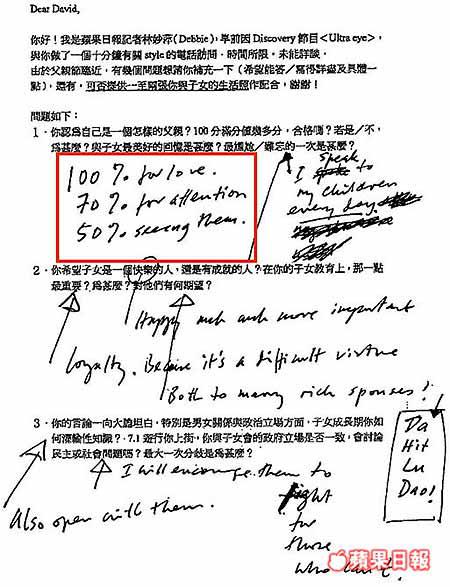 Dear David,
你好！我是蘋果日報記者林妙添(Debbie)，早前因 Discovery 節目<Ultra eye>，
與你做了一個十分鐘有關 style 的電話訪問，時間所限，未能詳談。
由於父親節臨近，有幾個問題想請你補充一下（希望能答／寫得詳盡及具體一
點），還有，可否提供一至兩張你與子女的生活照作配合，謝謝！
問題如下：
1．你認為自己是一個怎樣的父親？100 分滿分值幾多分，合格嗎？若是／不，
為甚麼？與子女最美好的回憶是甚麼？最尷尬／難忘的一次是甚麼？
100% for love.
70% for attention
50% seeing them.
I speak to
my children
every day.
2．你希望子女是一個快樂的人，還是有成就的人？在你的子女教育上，那一點
最重要？為甚麼？對他們有何期望？
Happy much much more important
Loyalty. Because it's a difficult virtue
Both to marry rich spouses!
3．你的言論一向大膽坦白，特別是男女關係與政治立場方面，子女成長期你如
何灌輸性知識？7.1 遊行你上街，你與子女會的政府立場是否一致，會討論
民主或社會問題嗎？最大一次分歧是為甚麼？
Da
Hit
Lu
Dao!
I will encourage them to
fight
for
those
who can't.
Also open with them.
蘋果日報